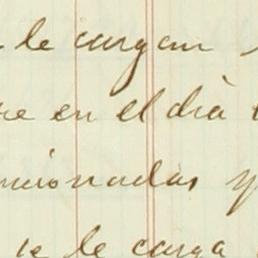 le cargan
en el dia
ncionadas y
se le carga